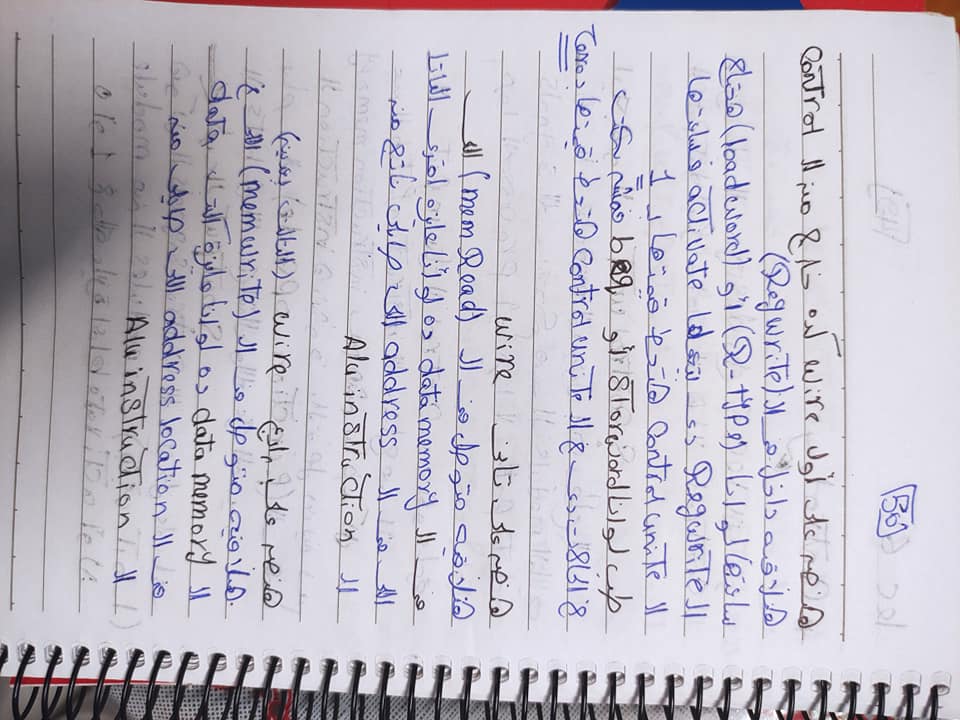 50
هنمر على أول wire كده خارج من ال Control
هنلاقيه داخل في ال (RegWrite)
ساعتها لو انا (R-type) أو (load word) هحتاج
ال Regwrite دى يتعملها activate فساعتها
ال Control unite هتحط قيمتها ب 1
طب لو انا Storeword أو beq فمش بكتب
ف الحالات دى ال Control unite هتحط قيمتها ب zero
هنمر على تانى wire
هنلاقيه متوصل في ال (mem Read) اللى
فى ال data memory ده لو أنا عايزه اقرى الداتا
اللى فى ال address اللى جايلى ناتج من
ال Alu instruction
هنمر على رابع wire (الثالث بعدين)
هنلاقيه متوصل فى ال (memwrite) اللى ف
ال data memory ده لو انا عايزة اكتب data
فى ال address location اللى جايلى من
ال Alu instruction